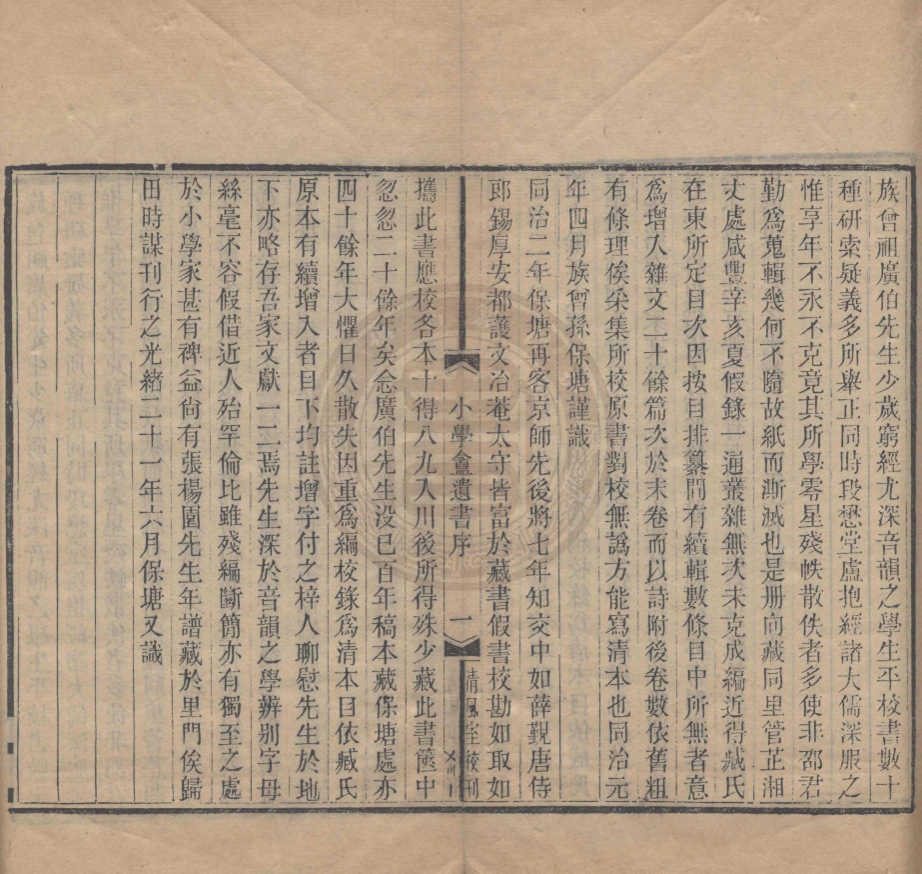 族曾祖廣伯先生少歲窮經尤深音韻之學生平校書數十
種研索疑義多所舉正同時段懋堂盧抱經諸大儒深服之
惟享年不永不克竟其所學零星殘帙散佚者多使非邵君
勤爲蒐輯幾何不隨故紙而澌滅也是册向藏同里管芷湘
丈處咸豐辛亥夏假錄一通叢雜無次未克成編近得臧氏
在東所定目次因按目排纂間有續輯數條目中所無者意
爲增入雜文二十餘篇次於末卷而以詩附後卷數依舊粗
有條理俟采集所校原書對校無譌方能寫清本也同治元
年四月族曾孫保塘謹識
同治二年保塘再客京師先後將七年知交中如薛覲唐侍
郎錫厚安都護文冶菴太守皆富於藏書假書校勘如取如
小學盦遺書序
一
清風室校刊
攜此書應校各本十得八九入川後所得殊少藏此書篋中
忽忽二十餘年矣念廣伯先生没已百年稿本藏保塘處亦
四十餘年大懼日久散失因重爲編校錄爲清本目依臧氏
原本有續增入者目下均註增字付之梓人聊慰先生於地
下亦略存吾家文獻一二焉先生深於音韻之學辨别字母
絲毫不容假借近人殆罕倫比雖殘編斷簡亦有獨至之處
於小學家甚有裨益尙有張楊園先生年譜藏於里門俟歸
田時謀刊行之光緒二十一年六月保塘又識